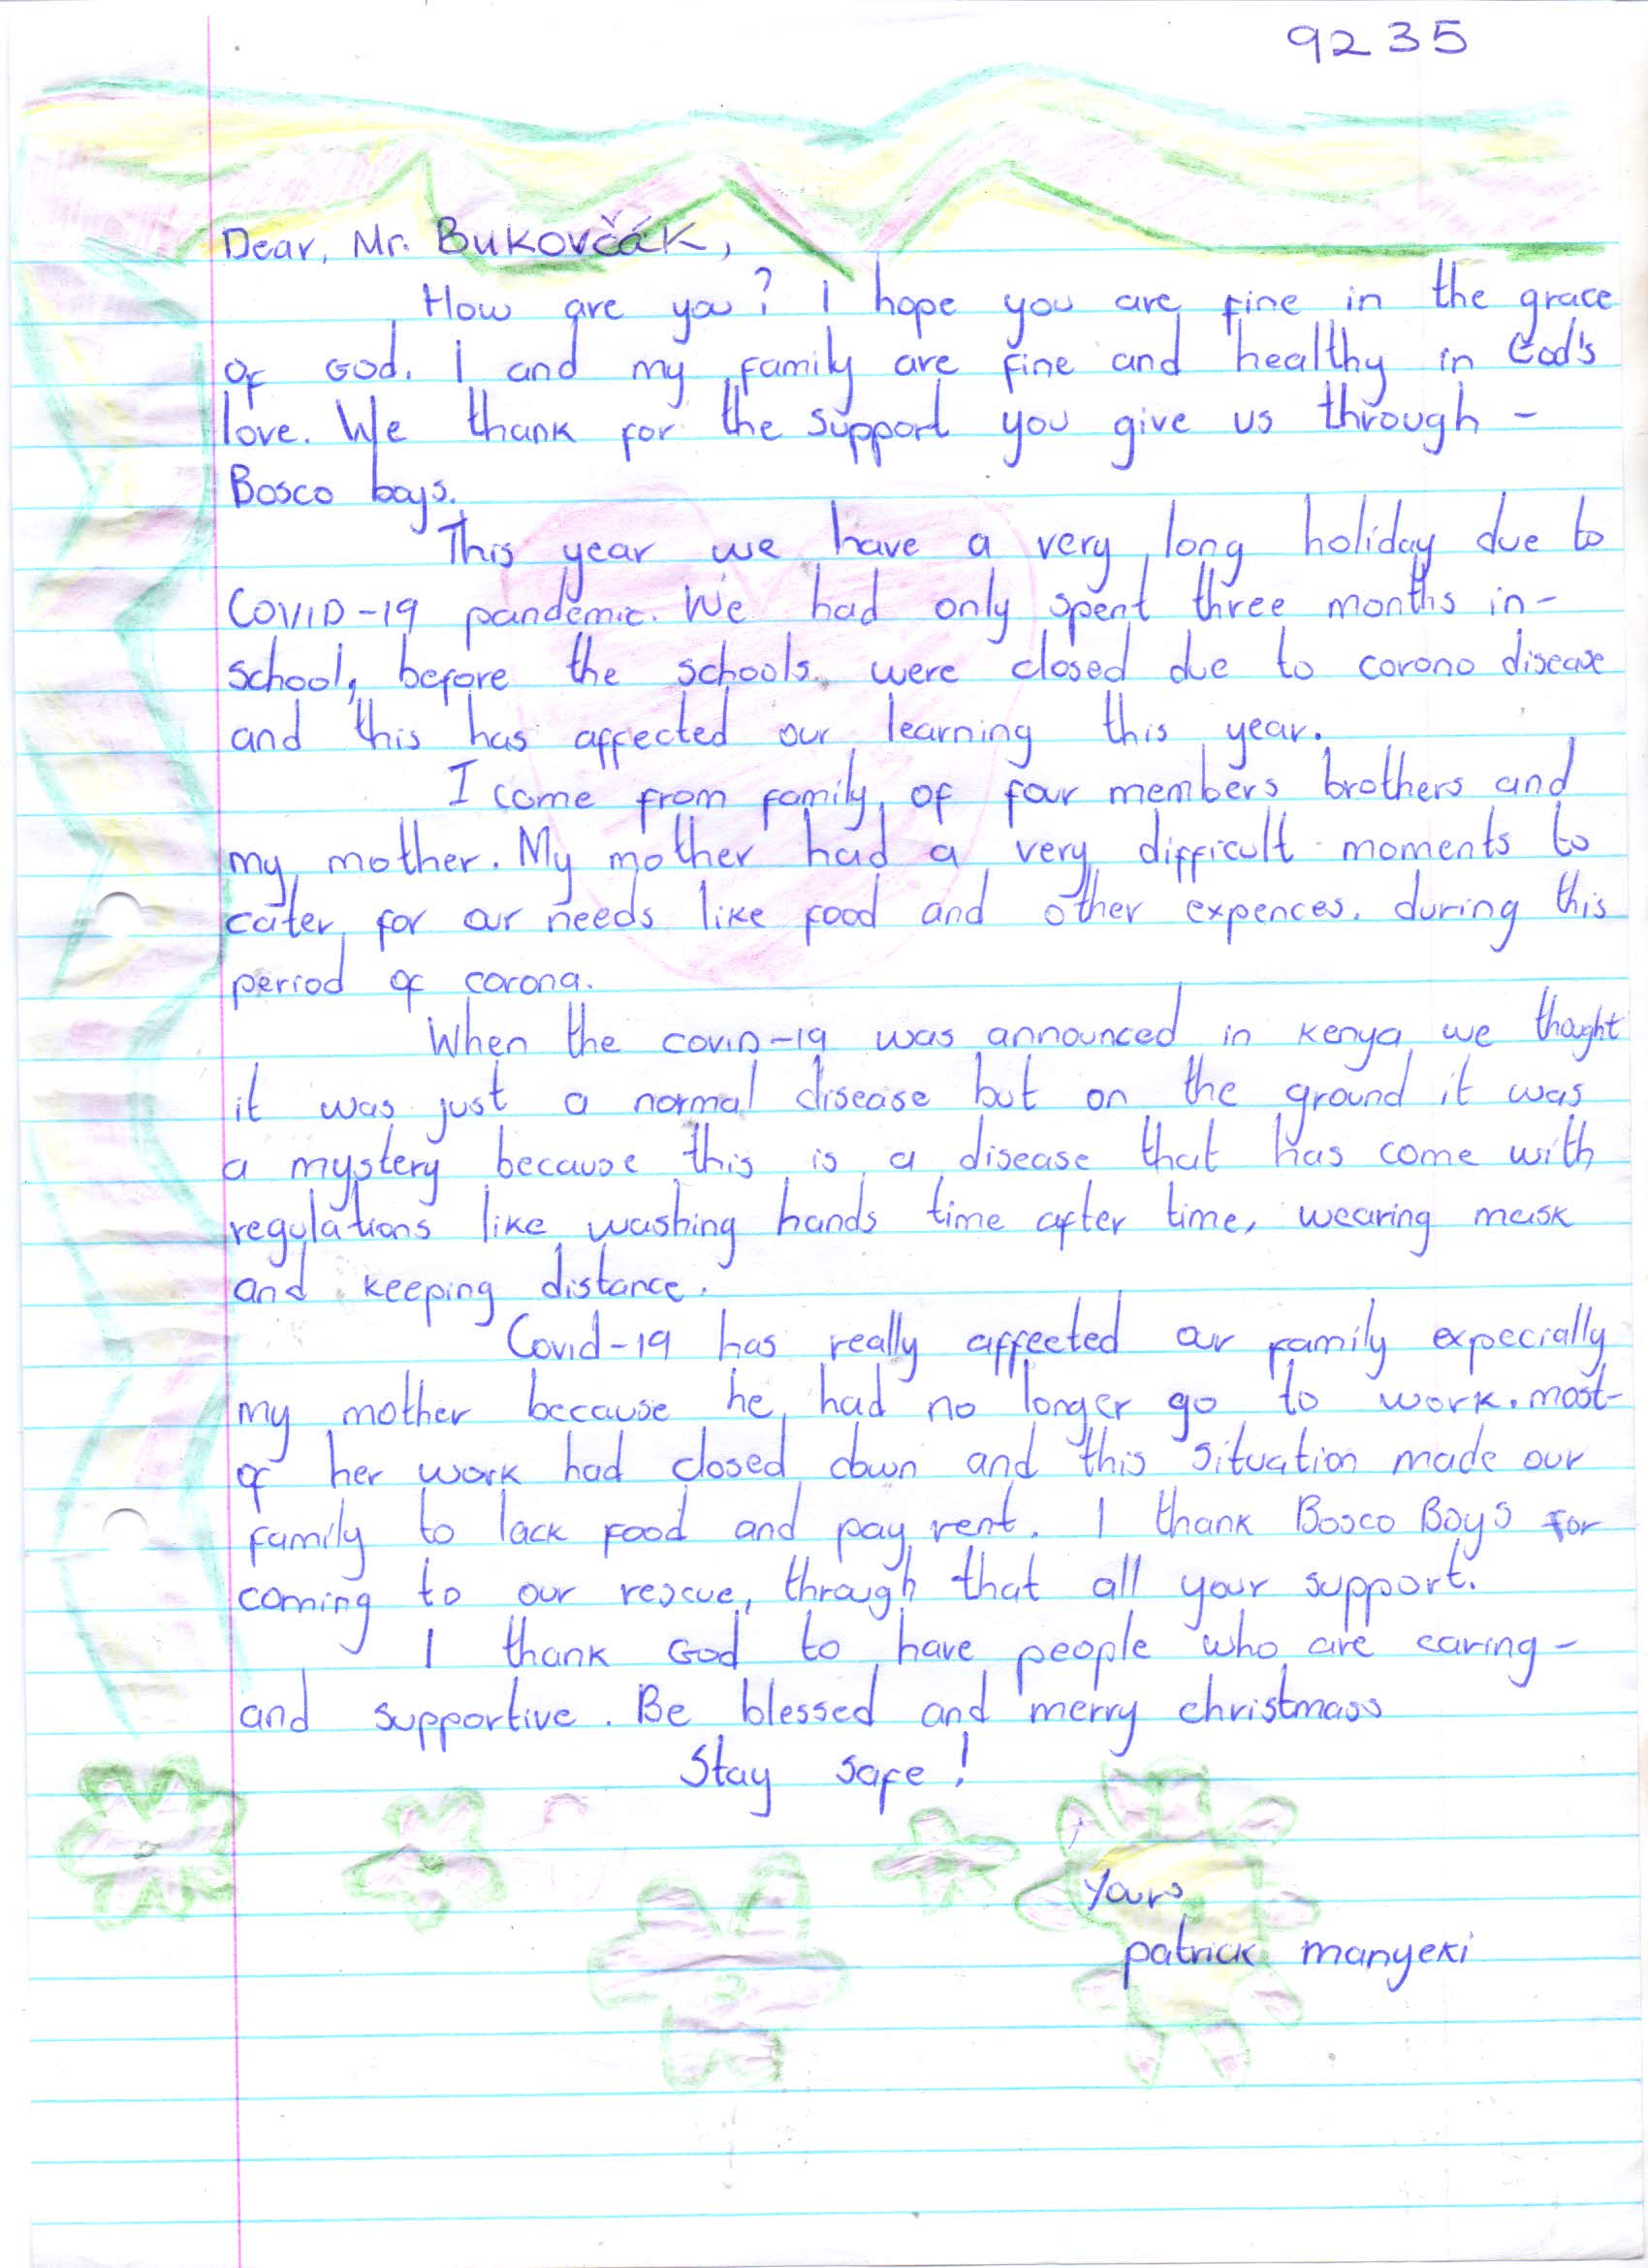 9235
Dear, Mr. Bukovčák,
How are you? I hope you are fine in the grace
of God. I and my family are fine and healthy in God's
love. We thank for the support you give us through -
Bosco boys.
This year we have a very long holiday due to
COVID-19 pandemic. We had only spent three months in-
school, before the schools. were closed due to corono disease
and this has affected our learning this year.
I come from family of four members brothers and
my mother. My mother had a very difficult moments to
cater for our needs like food and other expences. during this
period of corona.
When the covid-19 was announced in Kenya we thought
it was just a normal disease but on the ground it was
a mystery because this is a disease that has come with
regulations like washing hands time after time, wearing mask
and keeping distance.
Covid-19 has really affected our family expecially
my mother because he had no longer go to work. most-
of her work had closed down and this situation made our
family to lack food and pay rent. I thank Bosco Boys for
coming to our rescue, through that all your support.
I thank God to have people who are caring -
and supportive. Be blessed and merry christmass
Stay safe!
Yours
patrick manyeki